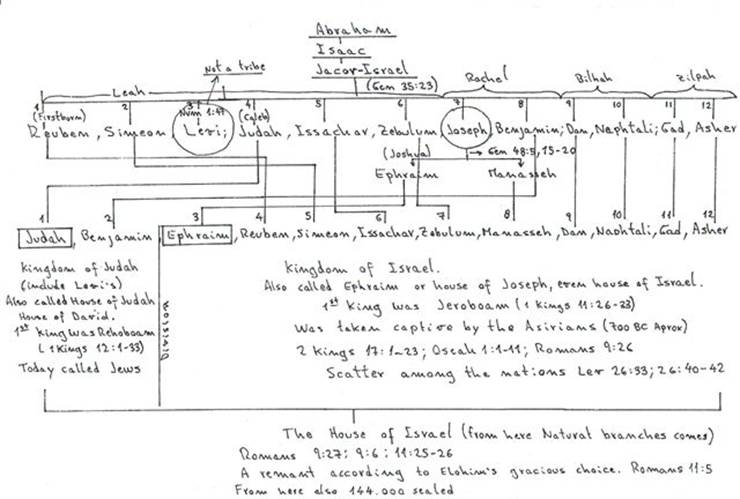 Abraham
Isaac
Jacor-Israel
(Gem 35:23)
Not a tribe
Leah
Rachel
Bilhah
Zilpah
1 2 3 4 5 6 7 8 9 10 11 12
(Firstborn)
Num 1:47
(Caleb)
Reuben, Simeon Levi; Judah, Issachar, Zebulum, Joseph, Benjamin; Dan, Naphtali; Gad, Asher
(Joshua)
Gem 48:5, 15-20
Ephraim Manasseh
1 2 3 4 5 6 7 8 9 10 11 12
Judah, Benjamin, Ephraim, Reuben, Simeon, Issachar, Zebulum, Manasseh, Dan, Naphtali, Gad, Asher
Kingdom of Judah
(include Levi's)
Also called House of Judah
House of David.
1st King was Rehoboam
(1 Kings 12:1-33)
Today called Jews
Division
Kingdom of Israel.
Also called Ephraim or house of Joseph, even house of Israel.
1st King was Jeroboam (1 Kings 11:26-33)
Was taken captive by the Asirians (700 BC Aprox)
2 Kings 17:1-23; Oseah 1:1-11; Romans 9:26
Scatter among the nations Lev 26:33; 26:40-42
The House of Israel (from here Natural branches comes)
Romans 9:27; 9:6; 11:25-26
A remant according to Elohim's gracious choice. Romans 11:5
From here also 144.000 sealed